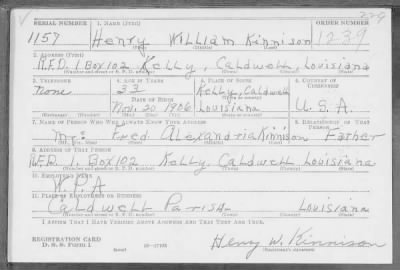 SERIAL NUMBER 1. NAME (Print) ORDER NUMBER
1157 Henry William Kinnison 1239
2. ADDRESS (Print)
R.F.D. 1 Box 102 Kelly, Caldwell, Louisiana
3. TELEPHONE 4. AGE IN YEARS 5. PLACE OF BIRTH 6. COUNTRY OF CITIZENSHIP
None 33 Kelly, Caldwell
DATE OF BIRTH
Nov. 20 1906 Louisiana U.S.A.
7. NAME OF PERSON WHO WILL ALWAYS KNOW YOUR ADDRESS 8. RELATIONSHIP OF THAT PERSON
Mr. Fred Alexandria Kinnison Father
9. ADDRESS OF THAT PERSON
R.F.D. 1. Box 102 Kelly, Caldwell Louisiana
10. EMPLOYER'S NAME
W.P.A
11. PLACE OF EMPLOYMENT OR BUSINESS
Caldwell Parish Louisiana
I AFFIRM THAT I HAVE VERIFIED ABOVE ANSWERS AND THAT THEY ARE TRUE.
REGISTRATION CARD
D. S. S. Form 1
Henry W. Kinnison